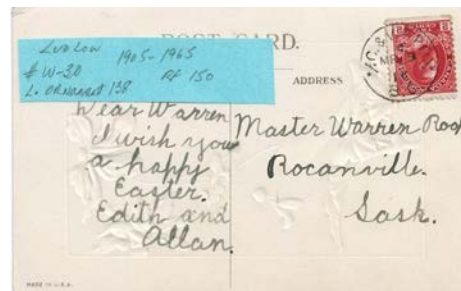 POST CARD.
LUDLOW 1905-1965
# W-30 RF 150
L. ORNAMENT 138
ADDRESS
Dear Warren
I wish you
a happy
Easter.
Edith and
Allan.
Master Warren
Rocanville.
Sask.
MADE IN U.S.A.